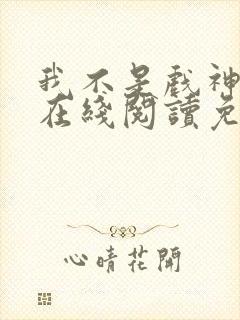 我不是戲神
在綫閱讀免
心晴花開